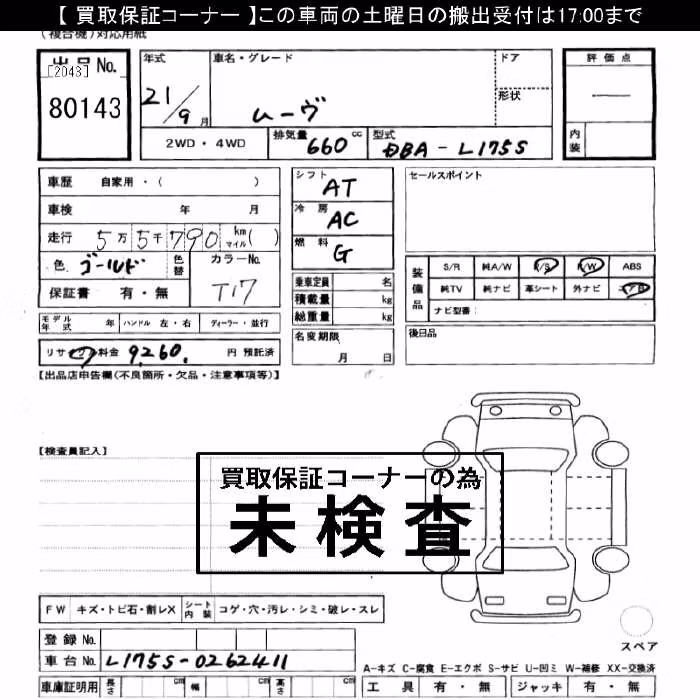 【 買取保証コーナー 】この車両の土曜日の搬出受付は17:00まで
(複合機)対応用紙
出品No.
[2043]
80143
年式 21/9月
車名・グレード ムーヴ
ドア
形状
評価点
内装
2WD・4WD
排気量 660 cc
型式 DBA-L175S
車歴 自家用・( )
車検 年 月
走行 5万5千790 km マイル ( )
色 ゴールド 色替 カラーNo. T17
保証書 有・無
シフト AT
冷房 AC
燃料 G
乗車定員 名
積載量 kg
総重量 kg
名変期限 月 日
セールスポイント
装備品
S/R 純A/W P/S P/W ABS
純TV 純ナビ 革シート 外ナビ エアB
ナビ型番:
後日品
モデル年式 年 ハンドル 左・右 ディーラー・並行
リサイクル料金 9,260. 円 預託済
【出品店申告欄(不良箇所・欠品・注意事項等)】
【検査員記入】
買取保証コーナーの為
未検査
FW キズ・トビ石・割レX シート内装 コゲ・穴・汚レ・シミ・破レ・スレ
登録No.
車台No. L175S-0262411
車庫証明用 長さ cm 幅 cm 高さ cm
スペア
A-キズ C-腐食 E-エクボ S-サビ U-凹ミ W-補修 XX-交換済
工具 有・無 ジャッキ 有・無